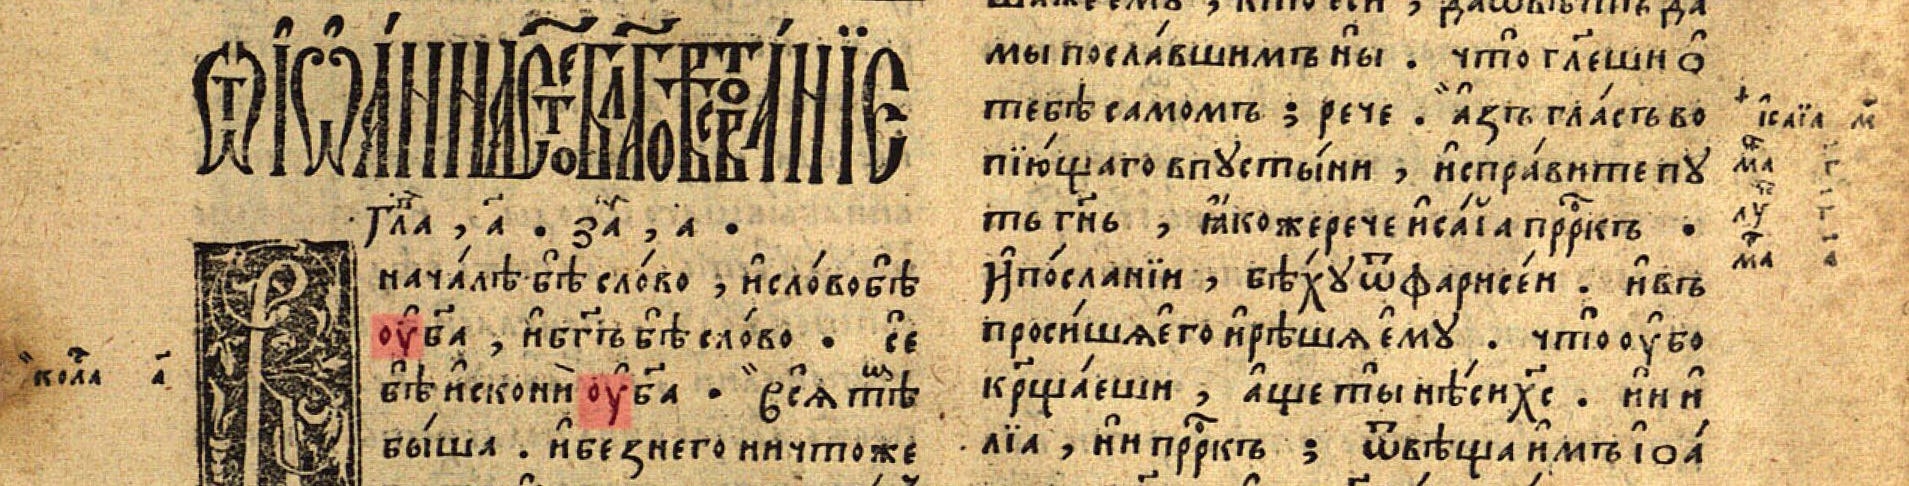 ѿ і҆ѡа́нна ст҃ое бл҃говѣствова́нїе
Гл҃а , а҃ . за҃ , а҃ .
нача́лѣ бѣ̀ сло́во , и҆ сло́во бѣ̀
оу҆ бг҃а , и҆ бг҃ъ бѣ̀ сло́во . се̑
бѣ̀ и҆скони̑ оу҆ бг҃а . всѧ̑ тѣ̑мъ
бы́ша . и҆ безнего ничтоже
мы пославшимъ ны̑ . что̀ гл҃еши ѻ҆
тебѣ самомъ ; рече . а҆зъ гла́съ во
пїю́щаго впꙋсты́ни , и҆спра́вите пꙋ
ть гн҃ь , ꙗ҆коже рече и҆са́їа прⷪ҇ркъ .
И҆ по́сланїи , бѣ́хꙋ ѿ фарисе́и . и҆ въ
проси́шѧ є҆го и҆ рѣ́шѧ є҆мꙋ . что̀ оу҆бо
крⷭ҇ща́еши , а҆ще ты̀ нѣ́си хс҃ . ни и҆
лїа , ни прⷪ҇ркъ ; ѿвѣща и҆мъ і҆ѡа́
і҆саїа м҃
ма г҃
лу г҃
ма а҃
кола а҃